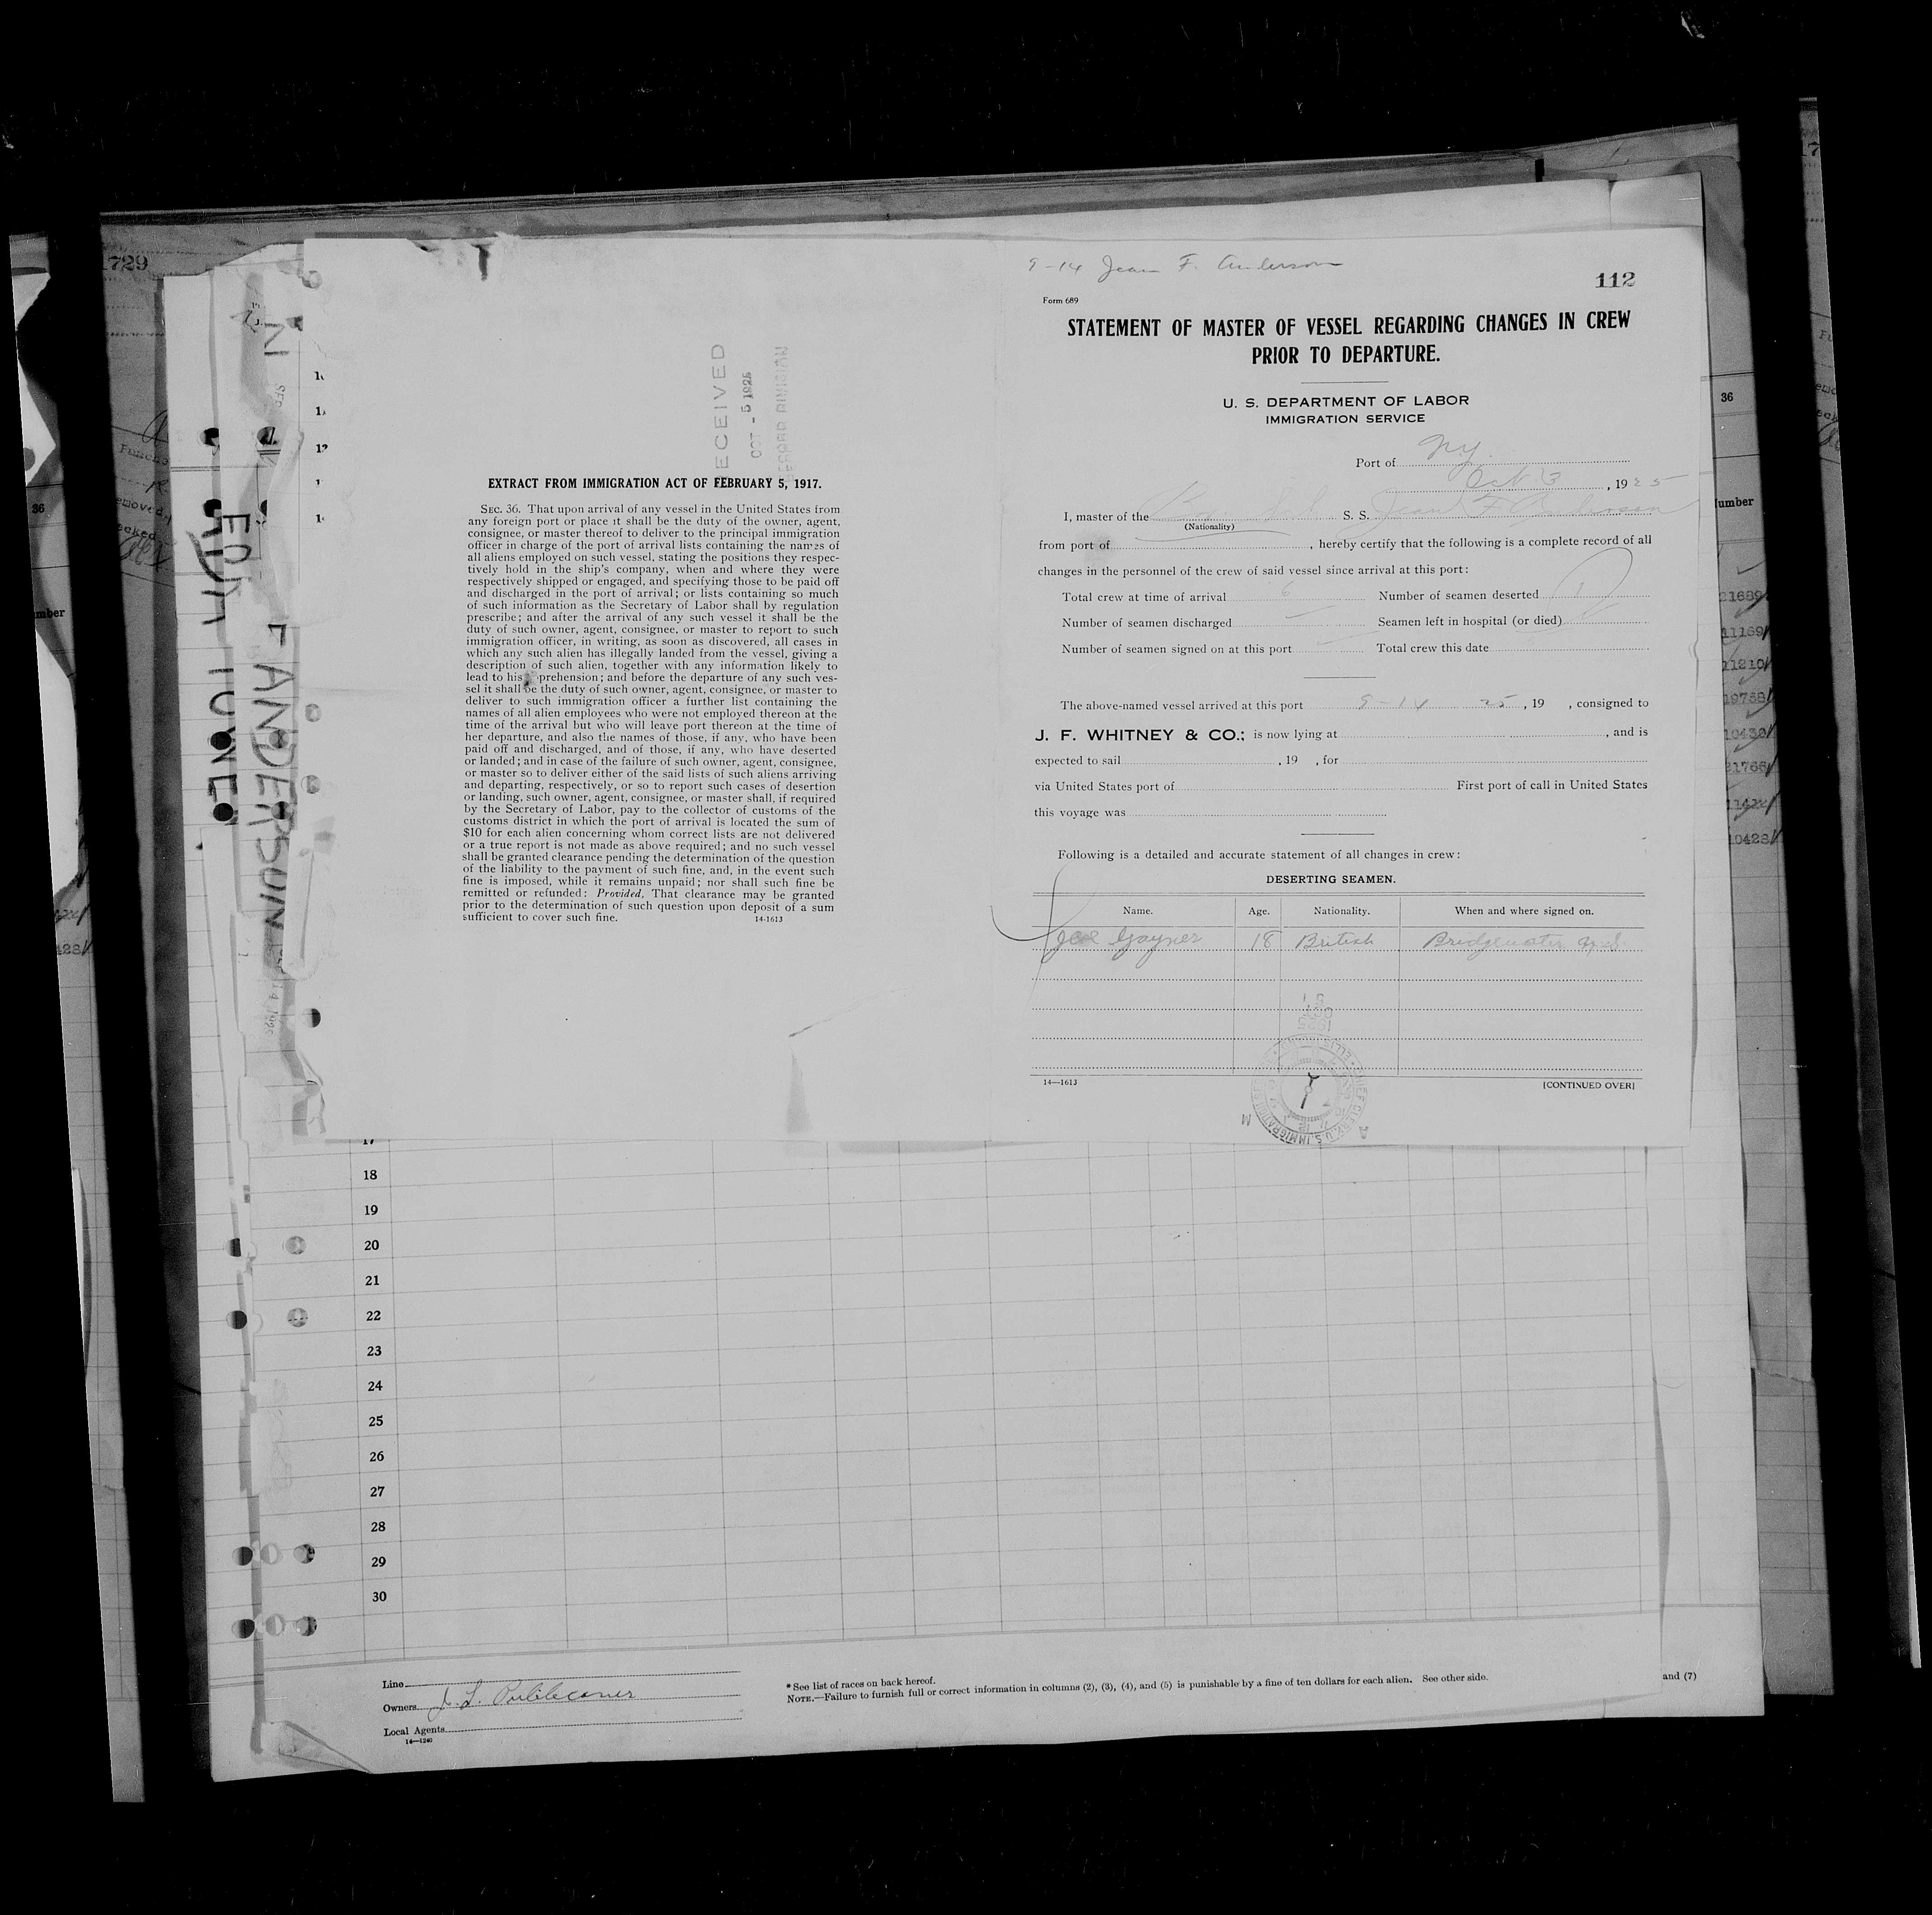 1729
ECEIVED
OCT - 5 1925
RECORD DIVISION
EXTRACT FROM IMMIGRATION ACT OF FEBRUARY 5, 1917.
SEC. 36. That upon arrival of any vessel in the United States from
any foreign port or place it shall be the duty of the owner, agent,
consignee, or master thereof to deliver to the principal immigration
officer in charge of the port of arrival lists containing the names of
all aliens employed on such vessel, stating the positions they respec-
tively hold in the ship's company, when and where they were
respectively shipped or engaged, and specifying those to be paid off
and discharged in the port of arrival; or lists containing so much
of such information as the Secretary of Labor shall by regulation
prescribe; and after the arrival of any such vessel it shall be the
duty of such owner, agent, consignee, or master to report to such
immigration officer, in writing, as soon as discovered, all cases in
which any such alien has illegally landed from the vessel, giving a
description of such alien, together with any information likely to
lead to his prehension; and before the departure of any such ves-
sel it shall be the duty of such owner, agent, consignee, or master to
deliver to such immigration officer a further list containing the
names of all alien employees who were not employed thereon at the
time of the arrival but who will leave port thereon at the time of
her departure, and also the names of those, if any, who have been
paid off and discharged, and of those, if any, who have deserted
or landed; and in case of the failure of such owner, agent, consignee,
or master so to deliver either of the said lists of such aliens arriving
and departing, respectively, or so to report such cases of desertion
or landing, such owner, agent, consignee, or master shall, if required
by the Secretary of Labor, pay to the collector of customs of the
customs district in which the port of arrival is located the sum of
$10 for each alien concerning whom correct lists are not delivered
or a true report is not made as above required; and no such vessel
shall be granted clearance pending the determination of the question
of the liability to the payment of such fine, and, in the event such
fine is imposed, while it remains unpaid; nor shall such fine be
remitted or refunded: Provided, That clearance may be granted
prior to the determination of such question upon deposit of a sum
sufficient to cover such fine. 14-1613
9-14 Jean F. Anderson
112
Form 689
STATEMENT OF MASTER OF VESSEL REGARDING CHANGES IN CREW
PRIOR TO DEPARTURE.
U. S. DEPARTMENT OF LABOR
IMMIGRATION SERVICE
Port of N.Y.
Oct 3, 1925
I, master of the S. S. Jean F Anderson
(Nationality)
from port of , hereby certify that the following is a complete record of all
changes in the personnel of the crew of said vessel since arrival at this port:
Total crew at time of arrival 6 Number of seamen deserted 1
Number of seamen discharged — Seamen left in hospital (or died)
Number of seamen signed on at this port Total crew this date
The above-named vessel arrived at this port 9-14 25, 19 , consigned to
J. F. WHITNEY & CO.; is now lying at , and is
expected to sail , 19 , for
via United States port of First port of call in United States
this voyage was
Following is a detailed and accurate statement of all changes in crew:
DESERTING SEAMEN.
Name. Age. Nationality. When and where signed on.
Joe Gayner 18 British Bridgewater N.S.
14—1613 [CONTINUED OVER]
F ANDERSON
36
36
umber
mber
21689
11169
11210
19758
10430
21766
11422
10428
17
18
19
20
21
22
23
24
25
26
27
28
29
30
Line
Owners
Local Agents
14—1240
* See list of races on back hereof.
NOTE.—Failure to furnish full or correct information in columns (2), (3), (4), and (5) is punishable by a fine of ten dollars for each alien. See other side.
and (7)